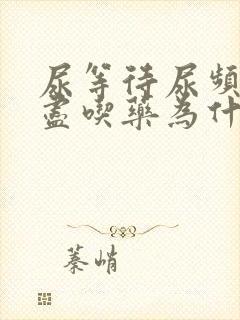 尿等待尿頻
盡喫藥為什
蓁峭